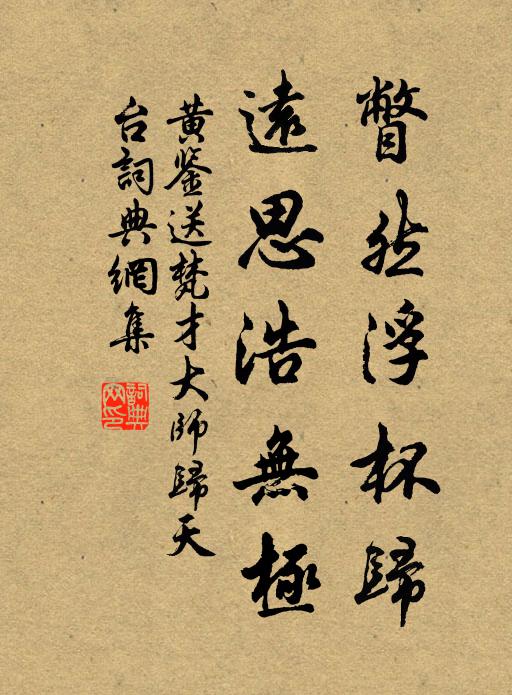 瞥然浮杯歸
遠思浩無極
黃鉴送梵才大師歸天
台詞典網集
詞典
网印